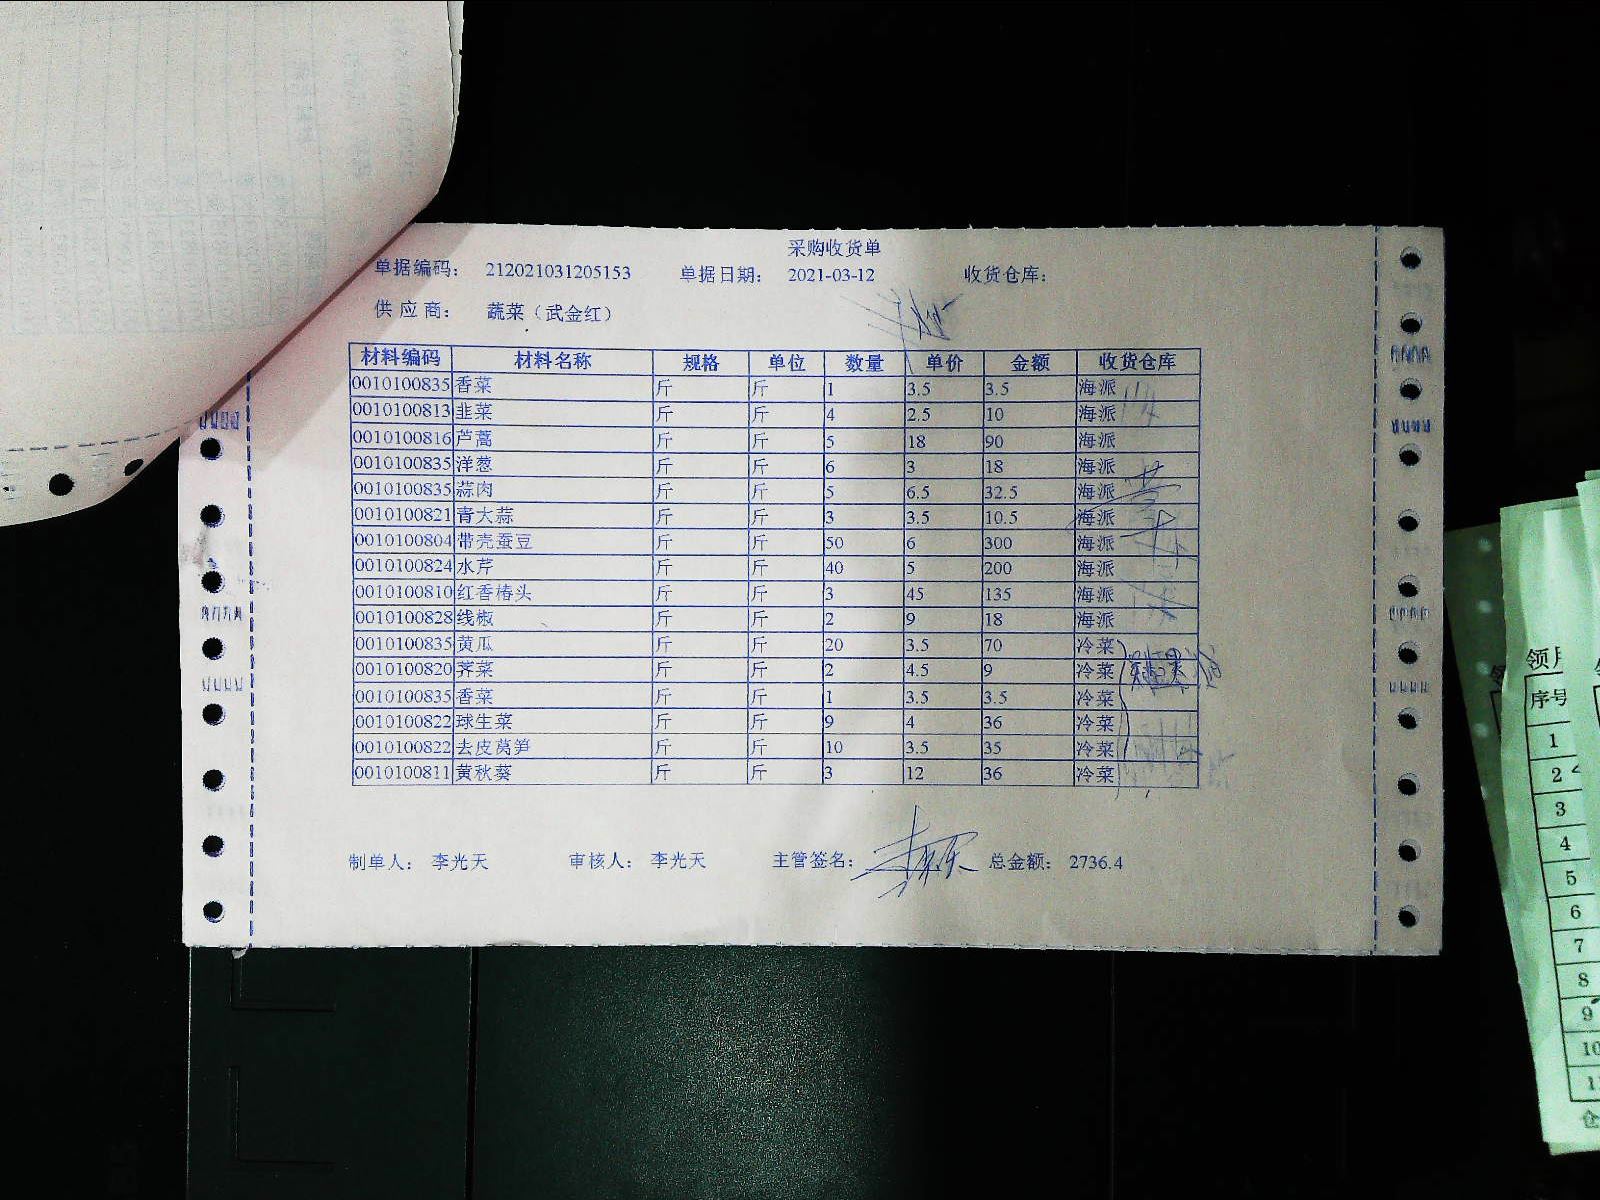 采购收货单
单据编码： 212021031205153 单据日期： 2021-03-12 收货仓库：
供应商： 蔬菜（武金红）
材料编码 材料名称 规格 单位 数量 单价 金额 收货仓库
0010100835 香菜 斤 斤 1 3.5 3.5 海派
0010100813 韭菜 斤 斤 4 2.5 10 海派
0010100816 芦蒿 斤 斤 5 18 90 海派
0010100835 洋葱 斤 斤 6 3 18 海派
0010100835 蒜肉 斤 斤 5 6.5 32.5 海派
0010100821 青大蒜 斤 斤 3 3.5 10.5 海派
0010100804 带壳蚕豆 斤 斤 50 6 300 海派
0010100824 水芹 斤 斤 40 5 200 海派
0010100810 红香椿头 斤 斤 3 45 135 海派
0010100828 线椒 斤 斤 2 9 18 海派
0010100835 黄瓜 斤 斤 20 3.5 70 冷菜
0010100820 荠菜 斤 斤 2 4.5 9 冷菜
0010100835 香菜 斤 斤 1 3.5 3.5 冷菜
0010100822 球生菜 斤 斤 9 4 36 冷菜
0010100822 去皮莴笋 斤 斤 10 3.5 35 冷菜
0010100811 黄秋葵 斤 斤 3 12 36 冷菜
制单人： 李光天 审核人： 李光天 主管签名： 总金额： 2736.4
领
序号
1
2
3
4
5
6
7
8
9
10